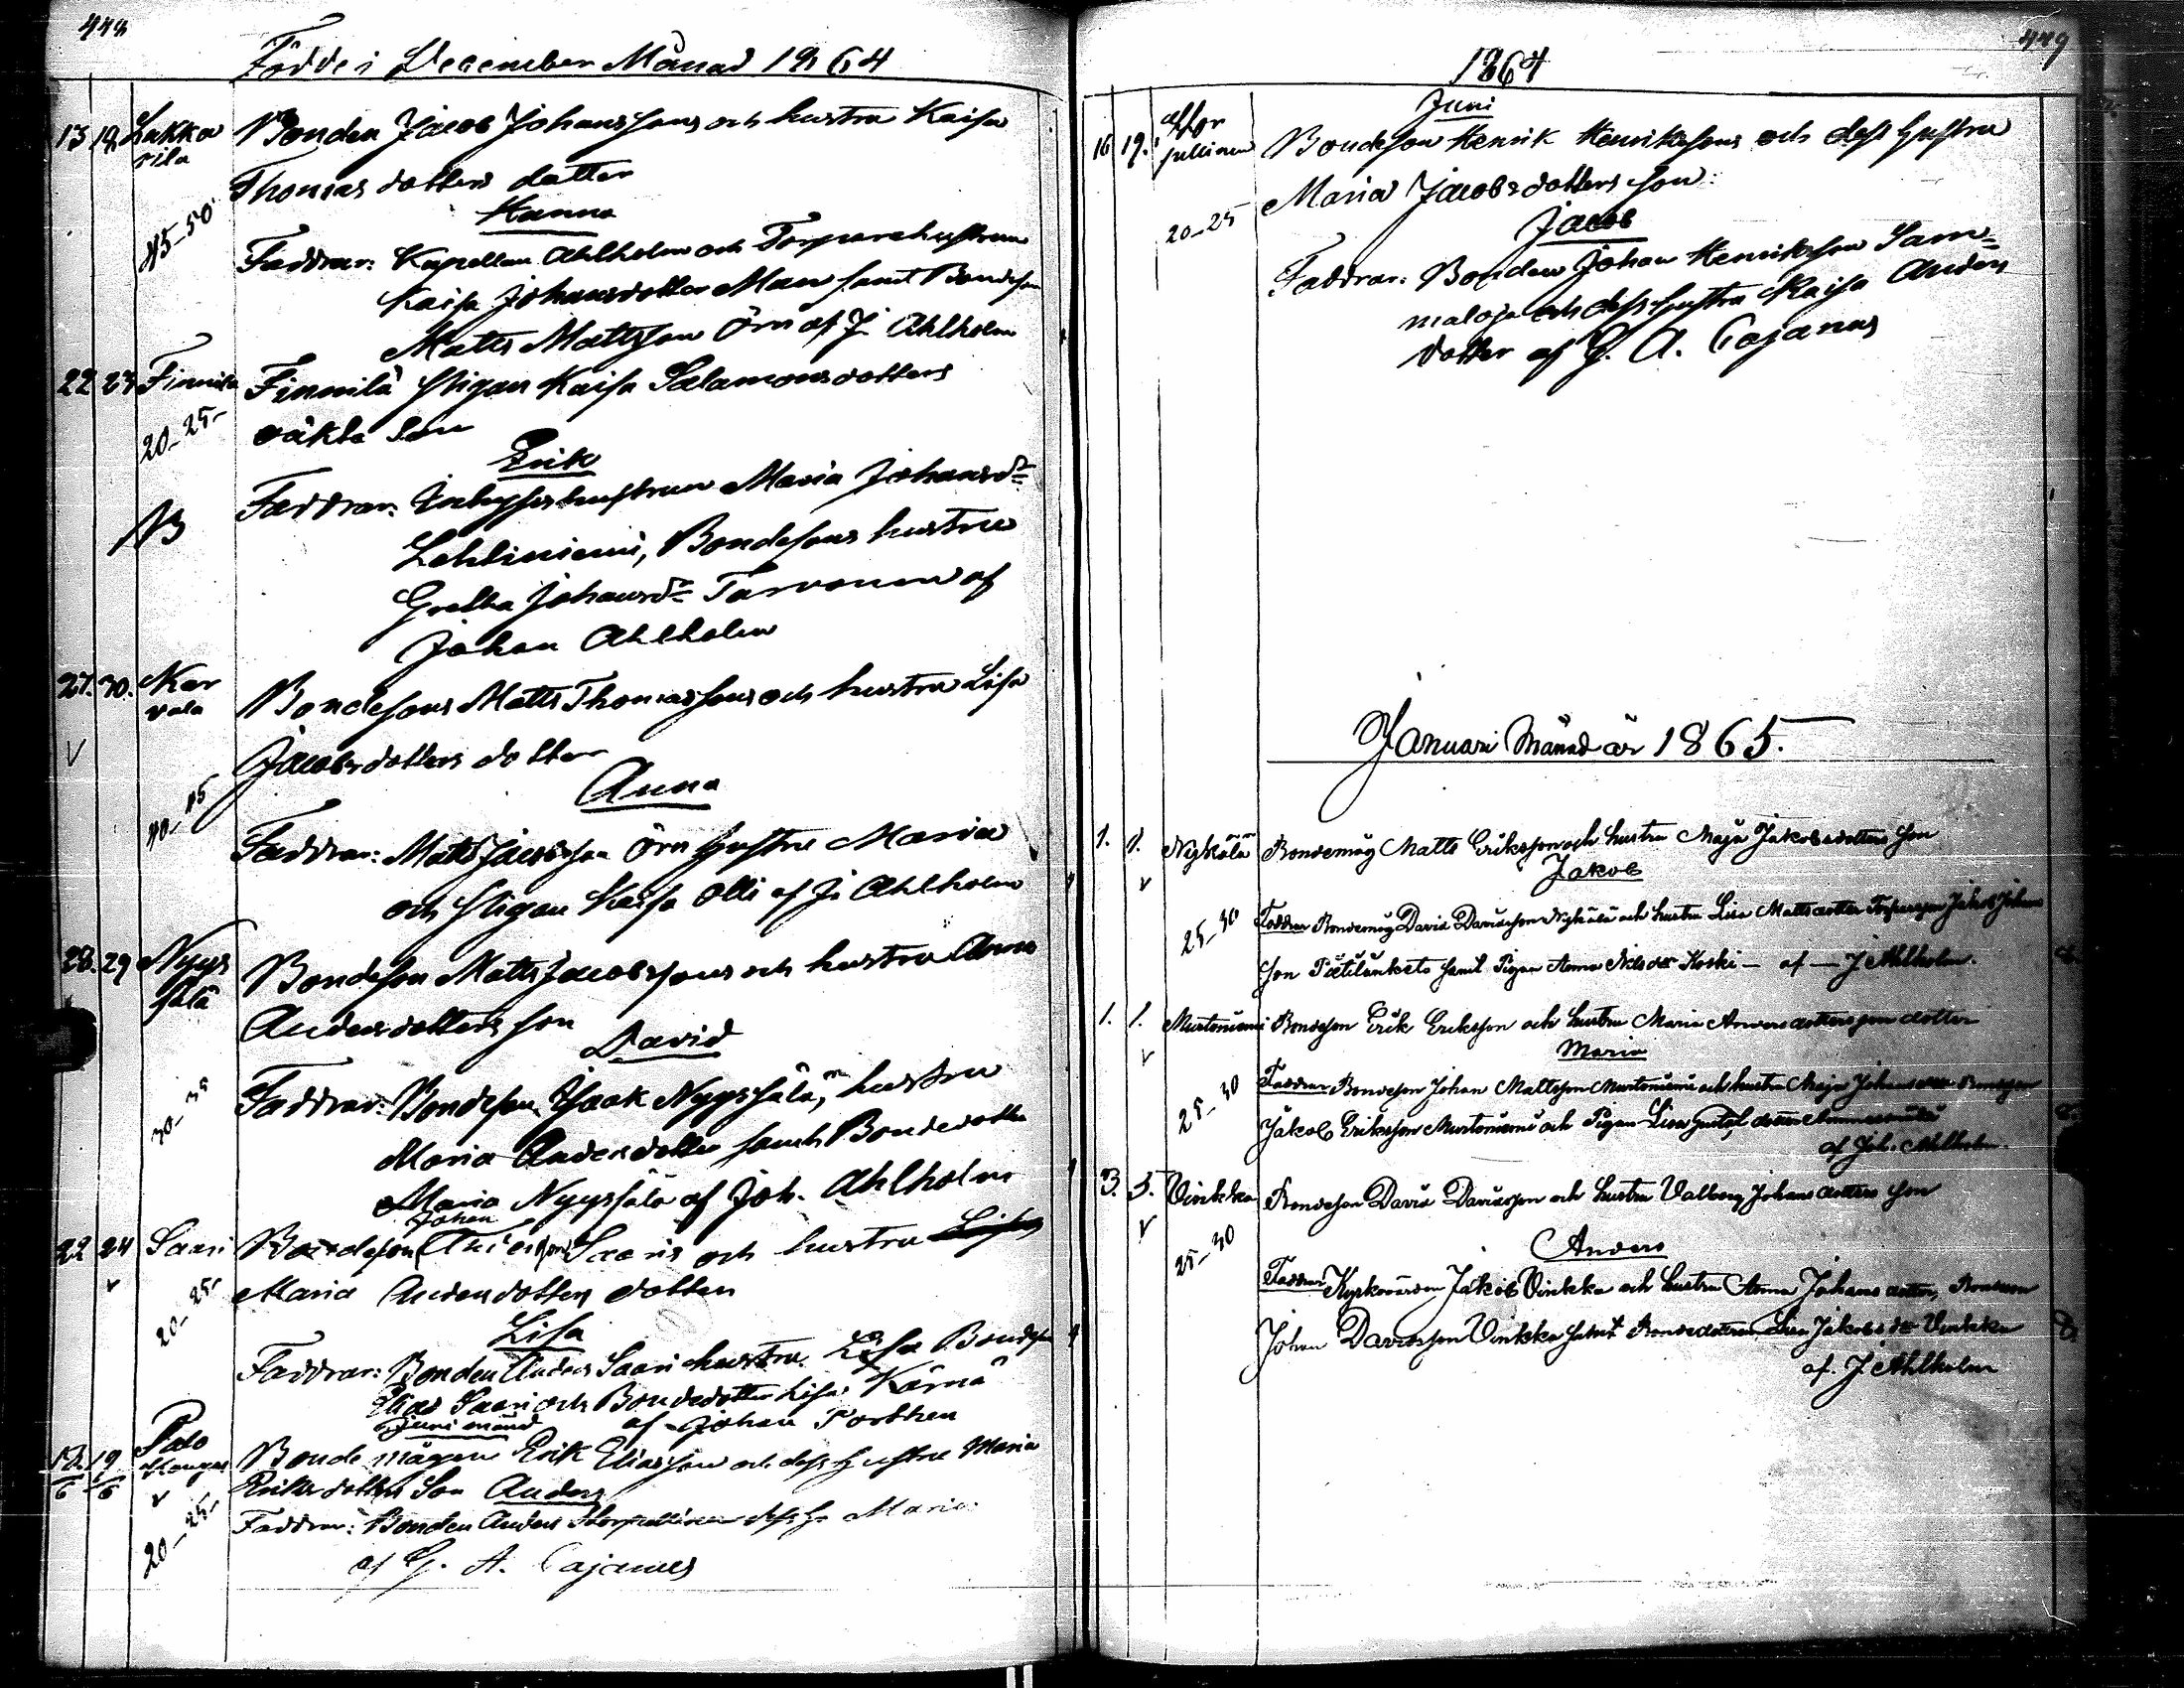 448
Födde i December Månad 1864
13 18 Lakka Bonden Jacob Johanssons och hustru Kaisa
rila
Thomas dotters dotter
Hanna
45-50
Faddrar: Kapellan Ahlholm och Torparehustrun
Kaisa Johansdotter Maw samt Bondeson
Matts Mattsson Örn af J. Ahlholm
22 23 Finnilä Finnilä pigan Kaisa Salamonsdotters
20-25-
oäkta Son
Erik
Faddrar: Inhyseshustrun Maria Johansdr
Lehtiniemi, Bondesons hustru
Gretha Johansdr Tarvonen af
Johan Ahlholm
27. 30. Kar Bondesons Matts Thomassons och hustru Lisa
vala
Jacobsdotters dotter
Anna
40-45
Faddrar: Matts Jacobsson Örn hustru Maria
och pigan Kaisa Olli af J. Ahlholm
28. 29 Nyys Bondeson Matts Jacobssons och hustru Anna
sälä
Andersdotters son
David
Faddrar: Bondeson Isaak Nyyssälä, hustru
Maria Andersdotter samt Bondedotter
Maria Nyyssälä af Joh. Ahlholm
Johan
22 24 Saari Bondeson Saaris och hustru
20-25-
Maria Andersdotters dotter
Lisa
Faddrar: Bonden Anders Saari hustru Lisa Bondeson
Elias Saari och Bondedotter Lisa Kärnä
Juni månad af Johan Forthen
19/6 Palo Bonde mågen Erik Eliasson och dess hustru Maria
kangas
20-25-
Eriksdotters Son Anders
Faddrar: Bonden Anders Maria
af G. A. Cajanus
449
1864
Juni
16 19. Bondeson Henrik Henrikssons och dess hustru
Maria Jacobsdotters son:
20-25
Jacob
Faddrar: Bonden Johan Henriksson Sam=
maloja och dess hustru Kaisa Anders
dotter af G. A. Cajanus
Januari Månad år 1865.
1. 1. Nykälä Bondemåg Matts Eriksson och hustru Maja Jakobsdotters son
Jakob
25-30
Faddrar Bondemåg David Davidsson Nykälä och hustru Lisa Mattsdotter Jakob Johans
son samt Pigan Anna Nilsdr Koski - af - J Ahlholm.
1. 1. Murtoniemi Bondeson Erik Eriksson och hustru Maria Andersdotters dotter
Maria
25-30
Faddrar Bondeson Johan Mattsson Murtoniemi och hustru Maja Johansdr Bondeson
Jakob Eriksson Murtoniemi och Pigan Lisa Gustafsdotter
af Joh. Ahlholm.
3. 5. Vinkka Bondeson David Davidsson och hustru Valborg Johansdotters son
Anders
25-30
Faddrar Kyrkovärden Jakob Vinkka och hustru Anna Johansdotter, Bondeson
Johan Davidsson Vinkka samt Bondedottren Lisa Jakobsdr Vinkka
af. J Ahlholm